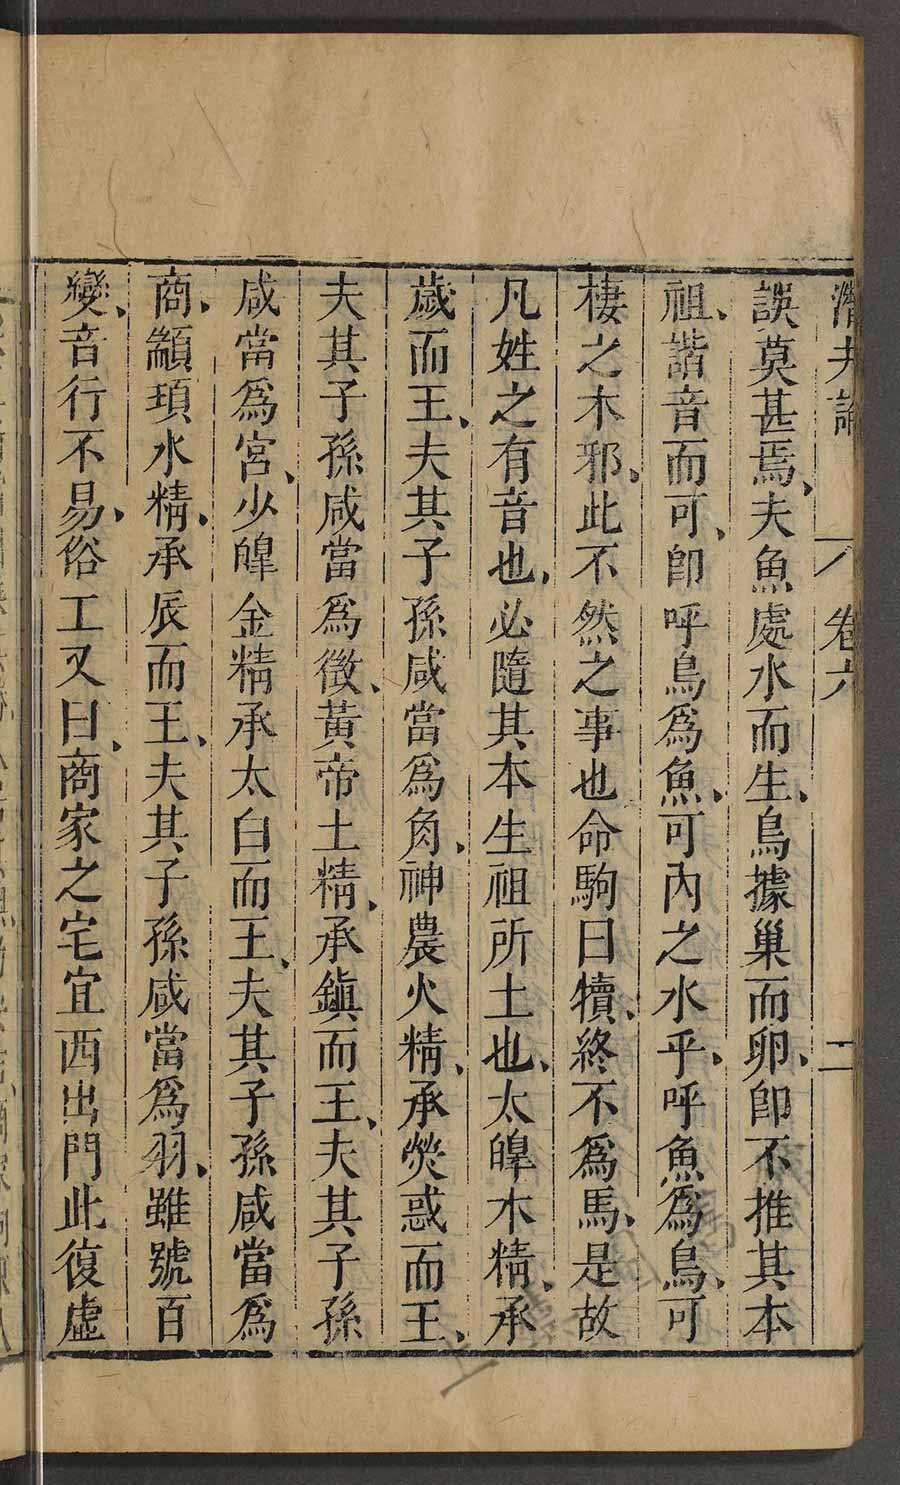 潛夫論 卷六 二
誤莫甚焉、夫魚處水而生、鳥據巢而卵、卽不推其本
祖、諧音而可、卽呼鳥爲魚、可內之水乎、呼魚爲鳥、可
棲之木邪、此不然之事也命駒曰犢、終不爲馬、是故
凡姓之有音也、必隨其本生祖所土也、太皡木精、承
歲而王、夫其子孫咸當爲角、神農火精、承熒惑而王、
夫其子孫咸當爲徵、黃帝土精、承鎭而王、夫其子孫
咸當爲宮、少皡金精承太白而王、夫其子孫咸當爲
商、顓頊水精、承辰而王、夫其子孫咸當爲羽、雖號百
變、音行不易、俗工又曰、商家之宅宜西出門此復虛